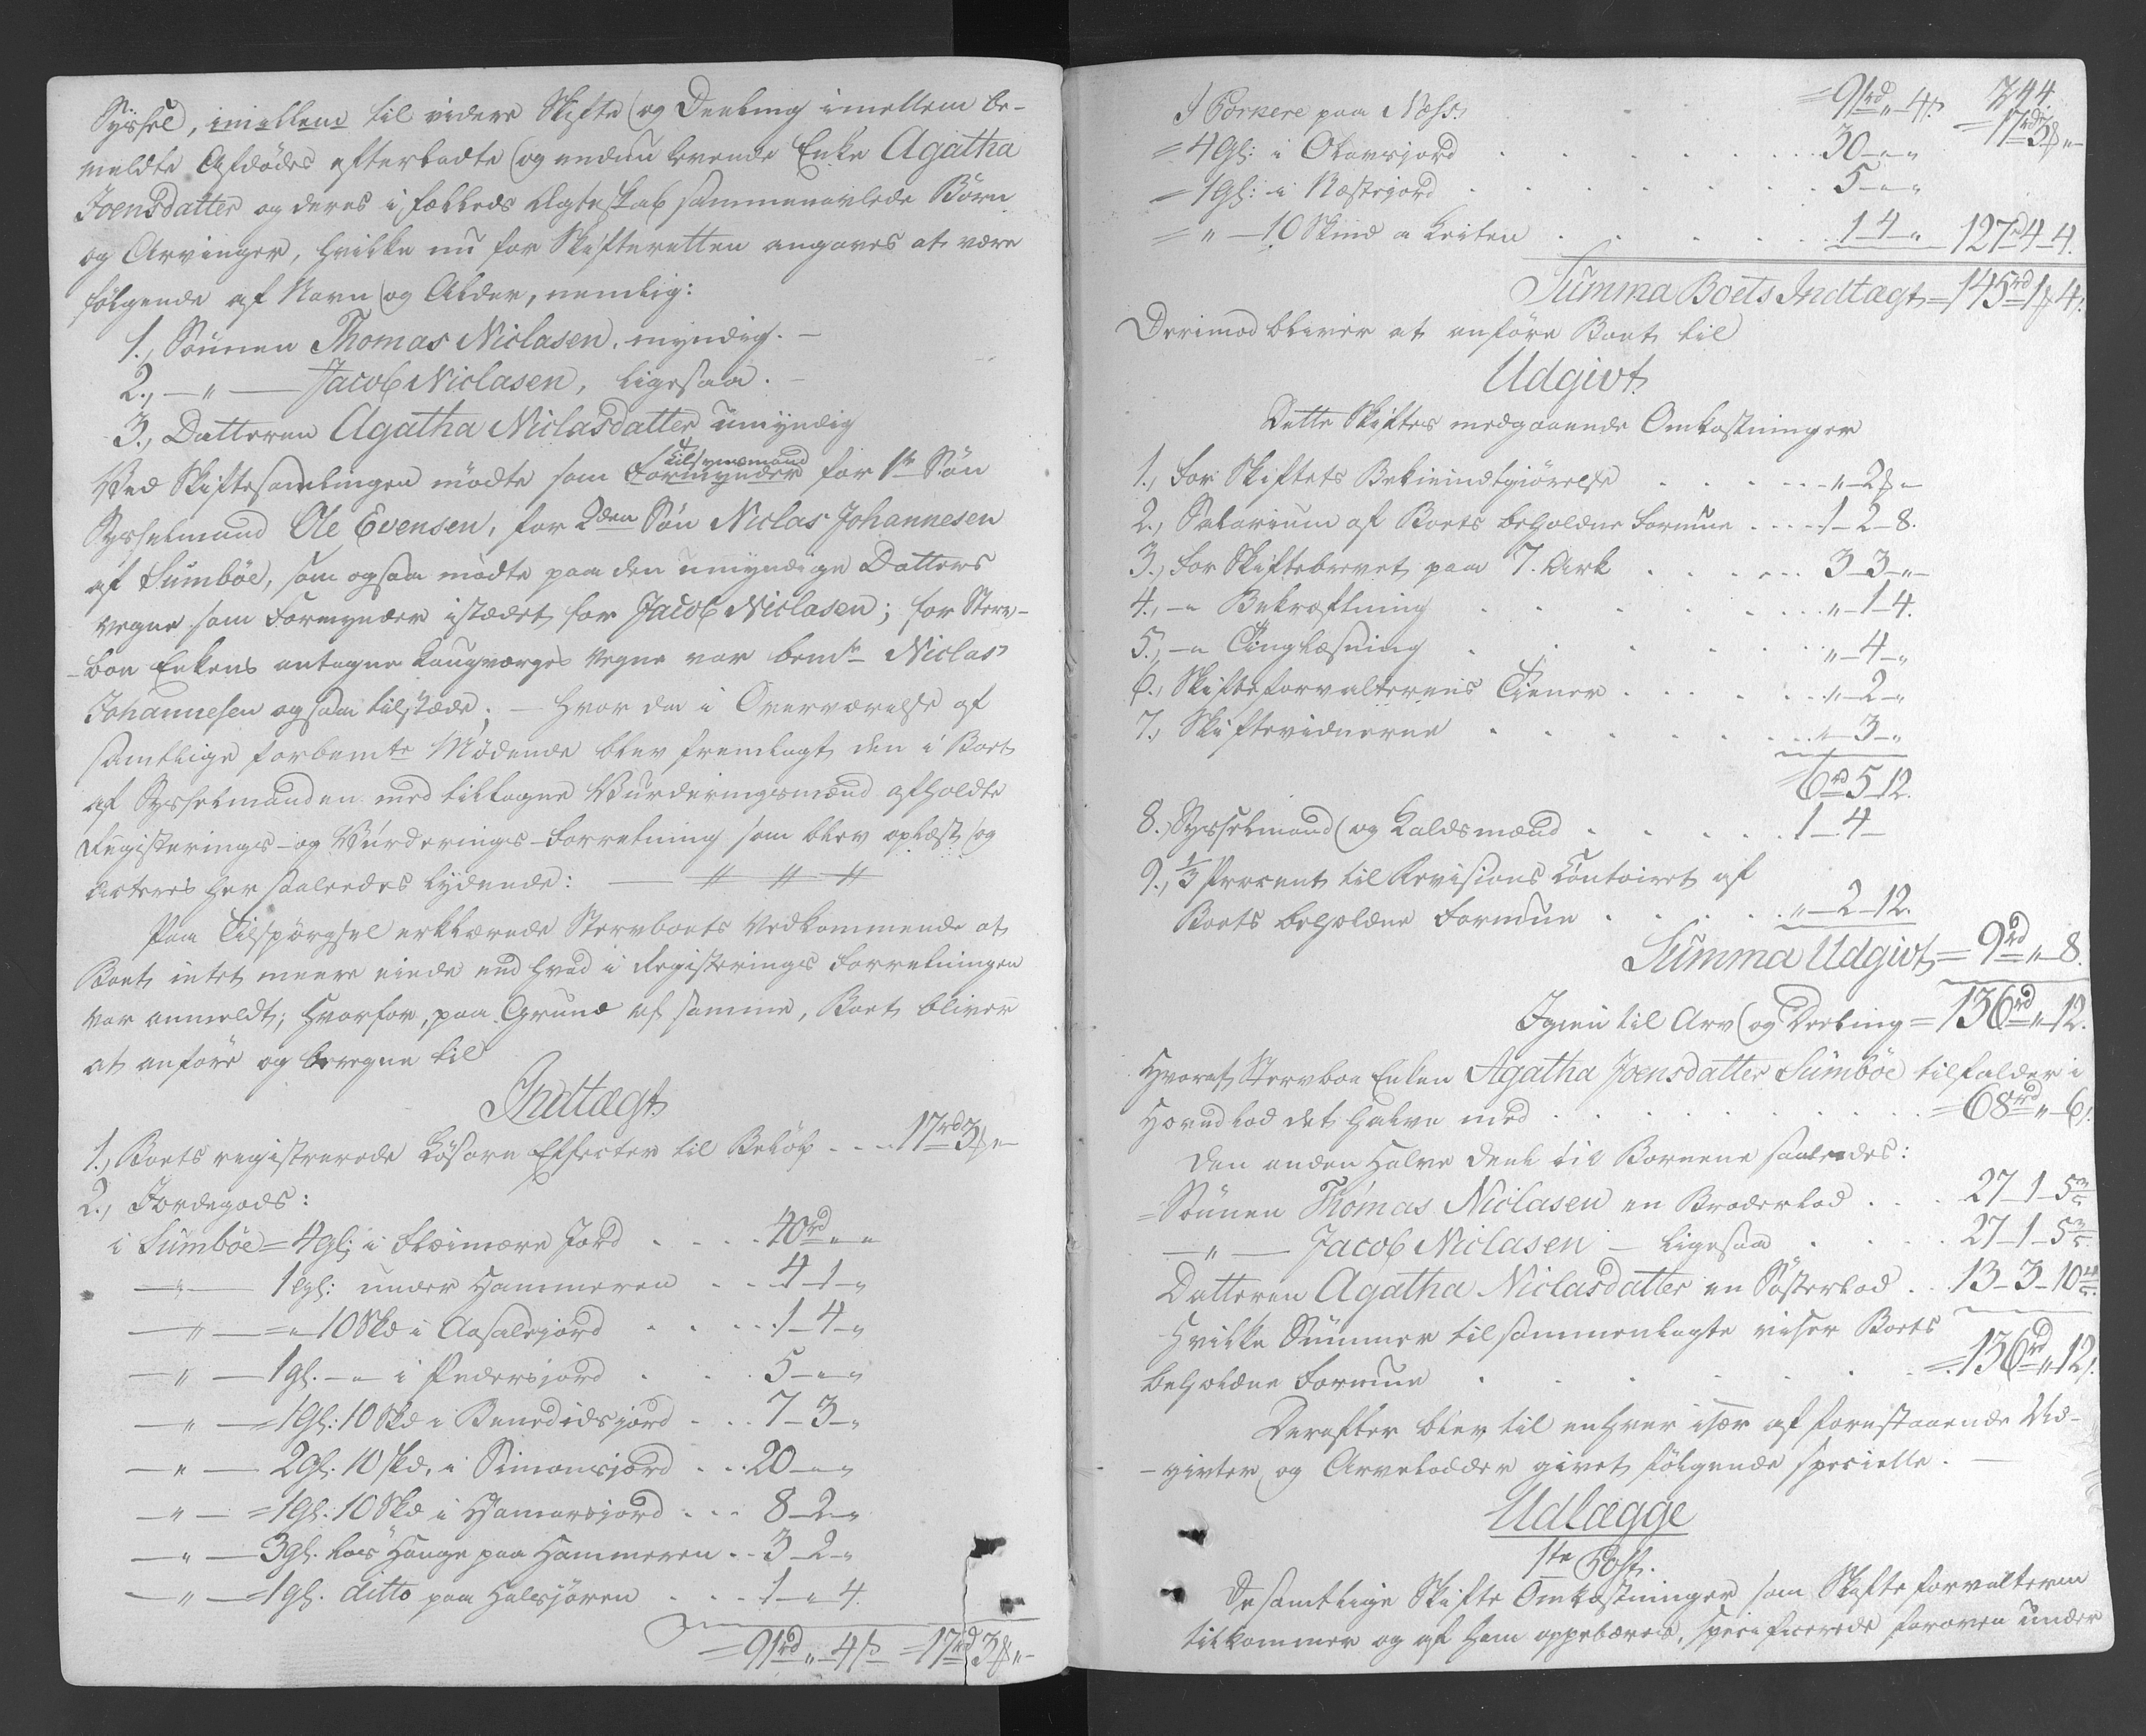 Syssel, imellem til videre Skifte og Deeling imellem be-
meldte Afdødes efterladte og endnu levende Enke Agatha
Joensdatter og deres i fælleds Ægteskab sammenavlede Børn
og Arvinger, hvilke nu for Skifteretten angaves at være
følgende af Navn og Alder, nemlig:
1., Sønnen Thomas Niclasen, myndig. –
2., – " – Jacob Niclasen, ligesaa. –
3., Datteren Agatha Niclasdatter umyndig
Ved Skiftesamlingen mødte som Formynder for 1ste Søn
Tilsynsmand
Sysselmand Ole Evensen, for 2den Søn Niclas Johannesen
af Sumbøe, som ogsaa mødte paa den umyndige Datters
vegne som Formynder istædet for Jacob Niclasen; for Sterv-
boe Enkens antagne Laugværges Vegne var bemte Niclas
Johannesen ogsaa tilstæde; – hvor da i Overværelse af
samtlige forbemte Mødende blev fremlagt den i Boet
af Sysselmanden med tiltagne Vurderingsmænd afholdte
Registerings- og Vurderings-Forretning som blev oplæst og
acteres her saaledes lydende: — // // //
Paa Tilspørgsel erklærede Stervboets Vedkommende at
Boet intet meere eiede end hvad i Registerings Forretningen
var anmeldt; hvorfor, paa Grund af samme, Boet bliver
at anføre og beregne til
Indtægt
1., Boets registrerede Løsøre Effecter til Beløb . . . 17rd 3ß "
2., Jordegods:
i Sumbøe = 4gl: i Fleimære Jord . . . . 40rd " "
– " – 1gl: under Hammeren . . 4–1–"
– " – = " 10 Skd i Aasalejord . . . . 1–4–"
– " – 1gl. – " – i Pedersjord . . . 5–"–"
– " – = 1Gl: 10 Skd i Benedidsjord . . . 7–3–"
– " – 2Gl: 10 Skd. i Simonsjord . . . 20–"–"
– " – = 1Gl: 10 Skd i Hamarsjord . . . 8–2–"
– " – 3gl. løs Hauge paa Hammeren . . 3–2–"
– " – = 1gl. ditto paa Halsjøren . . . 1–"–4.
= 91rd " 4ß = 17rd 3ß "
744.
= 91rd " 4ß. = 17rd 3ß "
I Porkere paa Ness.
= 4Gl: i Olavsjord . . . . . . . 30–"–"
= 1Gl: i Næstejord . . . . . . . 5–"–"
= " – 10 Skind a Leiten . . . . . . 1–4–" 127rd 4–4.
Summa Boets Indtægt = 145rd 1ß 4.
Derimod bliver at anføre Boet til
Udgivt
Dette Skiftes medgaaende Omkostninger
1., For Skiftets Bekiendtgiørelse . . . . . " – 2ß "
2., Salarium af Boets beholdne Formue . . . . 1–2–8.
3., For Skiftebrevet paa 7. Ark . . . . . 3–3–"
4., – " Bekræftning . . . . . " – 1–4.
5., – " Tinglæsning . . . . . . " – 4–"
6., Skifteforvalterens Tiener . . . . . " – 2–"
7., Skiftevidnerne . . . . . . " – 3–"
6rd 5–12.
8., Sysselmand og Kaldsmænd . . . . . 1–4–
9., 1/3 Procent til Revisions Contoiret af
Boets beholdne Formue . . . . . " – 2–12.
Summa Udgivt = 9rd " 8.
Igien til Arv og Deeling = 136rd " 12.
Hvoraf Stervboe Enken Agatha Joensdatter Sumbøe tilfalder i
Hovedlod det halve med . . . . . . . = 68rd " 6.
Den anden Halve Deel til Børnene saaledes:
= Sønnen Thomas Niclasen en Broderlod . . . 27–1–5 3/5
– " – Jacob Niclasen – ligesaa . . . . 27–1–5 3/5
Datteren Agatha Niclasdatter en Søsterlod . . 13–3–10
Hvilke Summer tilsammenlagte viser Boets
beholdne Formue . . . . . . . = 136rd " 12.
Derefter blev til enhver især af forestaaende Ud-
givter og Arvelodder givet følgende specielle. –
Udlægge
1te Post.
De samtlige Skifte Omkostninger som Skifteforvalteren
tilkommer og af ham oppebæres, specificerede foroven under